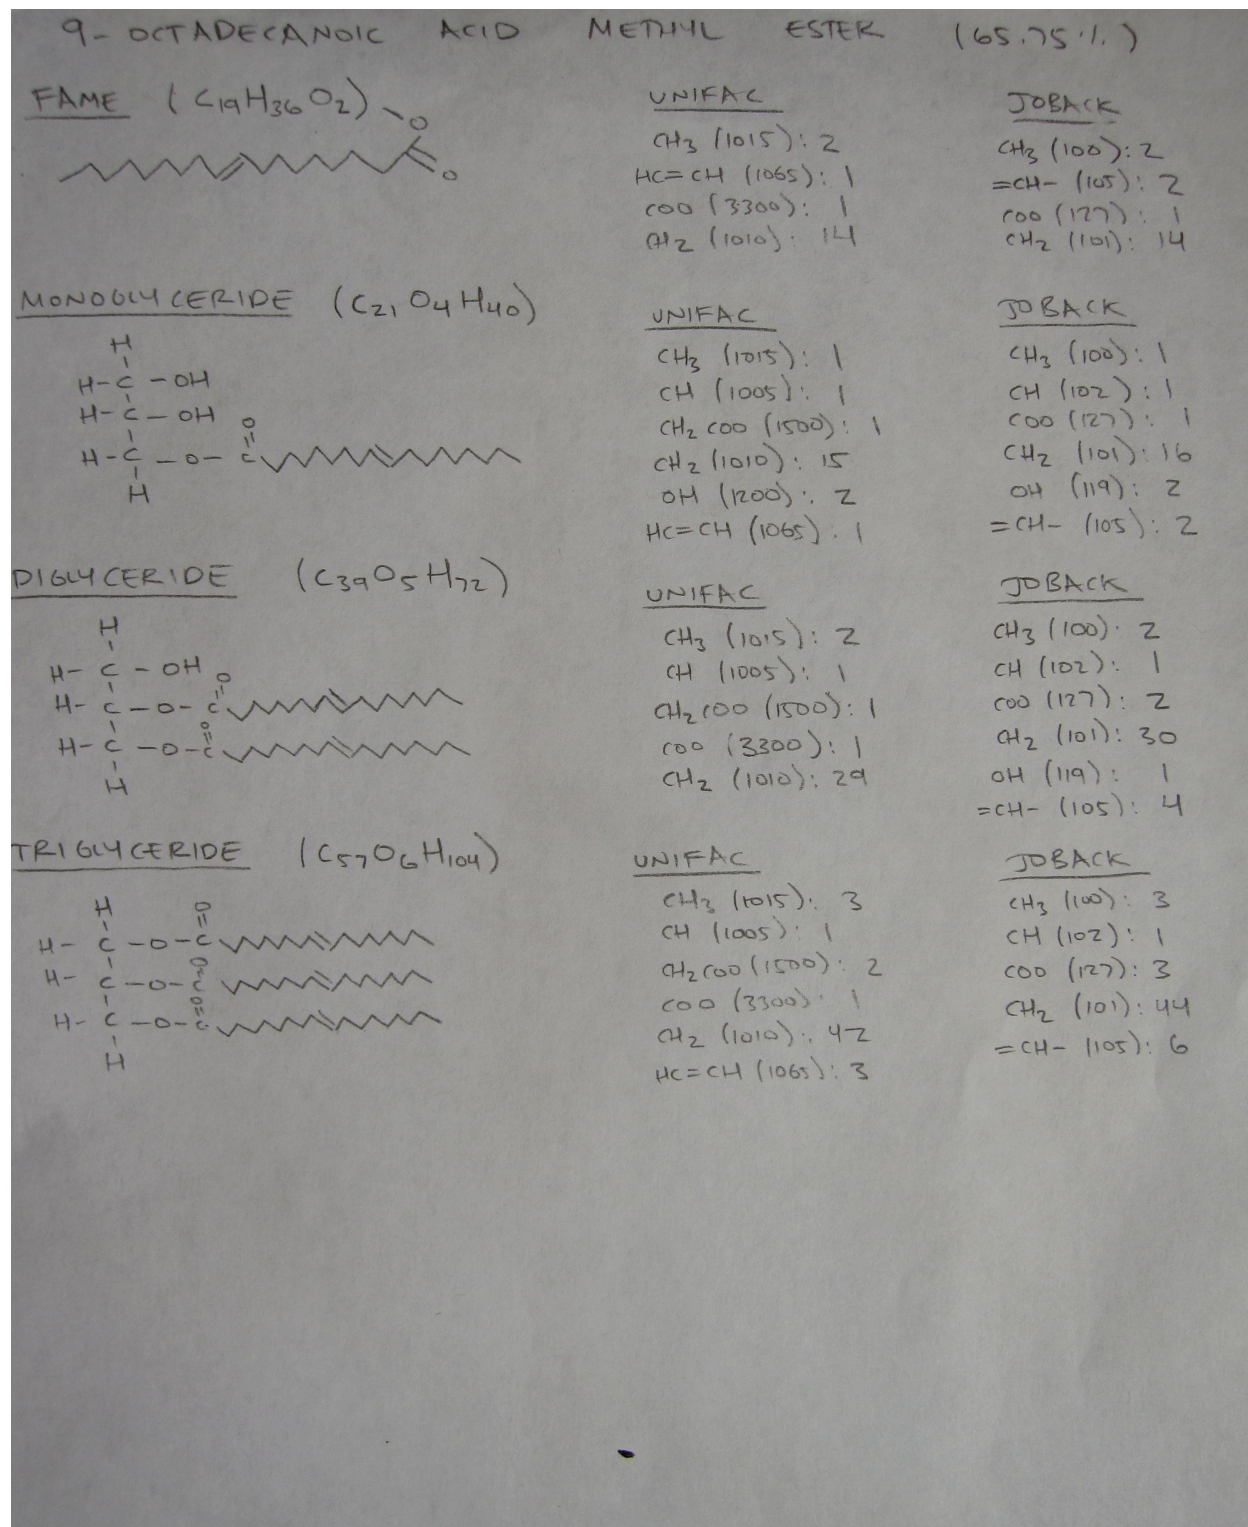 9-OCTADECANOIC ACID METHYL ESTER (65.75%)
FAME (C19H36O2)
O
O
UNIFAC
CH3 (1015): 2
HC=CH (1065): 1
COO (3300): 1
CH2 (1010): 14
JOBACK
CH3 (100): 2
=CH- (105): 2
COO (127): 1
CH2 (101): 14
MONOGLYCERIDE (C21O4H40)
H
H-C-OH
H-C-OH
O
H-C-O-C
H
UNIFAC
CH3 (1015): 1
CH (1005): 1
CH2COO (1500): 1
CH2 (1010): 15
OH (1200): 2
HC=CH (1065): 1
JOBACK
CH3 (100): 1
CH (102): 1
COO (127): 1
CH2 (101): 16
OH (119): 2
=CH- (105): 2
DIGLYCERIDE (C39O5H72)
H
H-C-OH
O
H-C-O-C
O
H-C-O-C
H
UNIFAC
CH3 (1015): 2
CH (1005): 1
CH2COO (1500): 1
COO (3300): 1
CH2 (1010): 29
JOBACK
CH3 (100): 2
CH (102): 1
COO (127): 2
CH2 (101): 30
OH (119): 1
=CH- (105): 4
TRIGLYCERIDE (C57O6H104)
H
O
H-C-O-C
O
H-C-O-C
O
H-C-O-C
H
UNIFAC
CH3 (1015): 3
CH (1005): 1
CH2COO (1500): 2
COO (3300): 1
CH2 (1010): 42
HC=CH (1065): 3
JOBACK
CH3 (100): 3
CH (102): 1
COO (127): 3
CH2 (101): 44
=CH- (105): 6